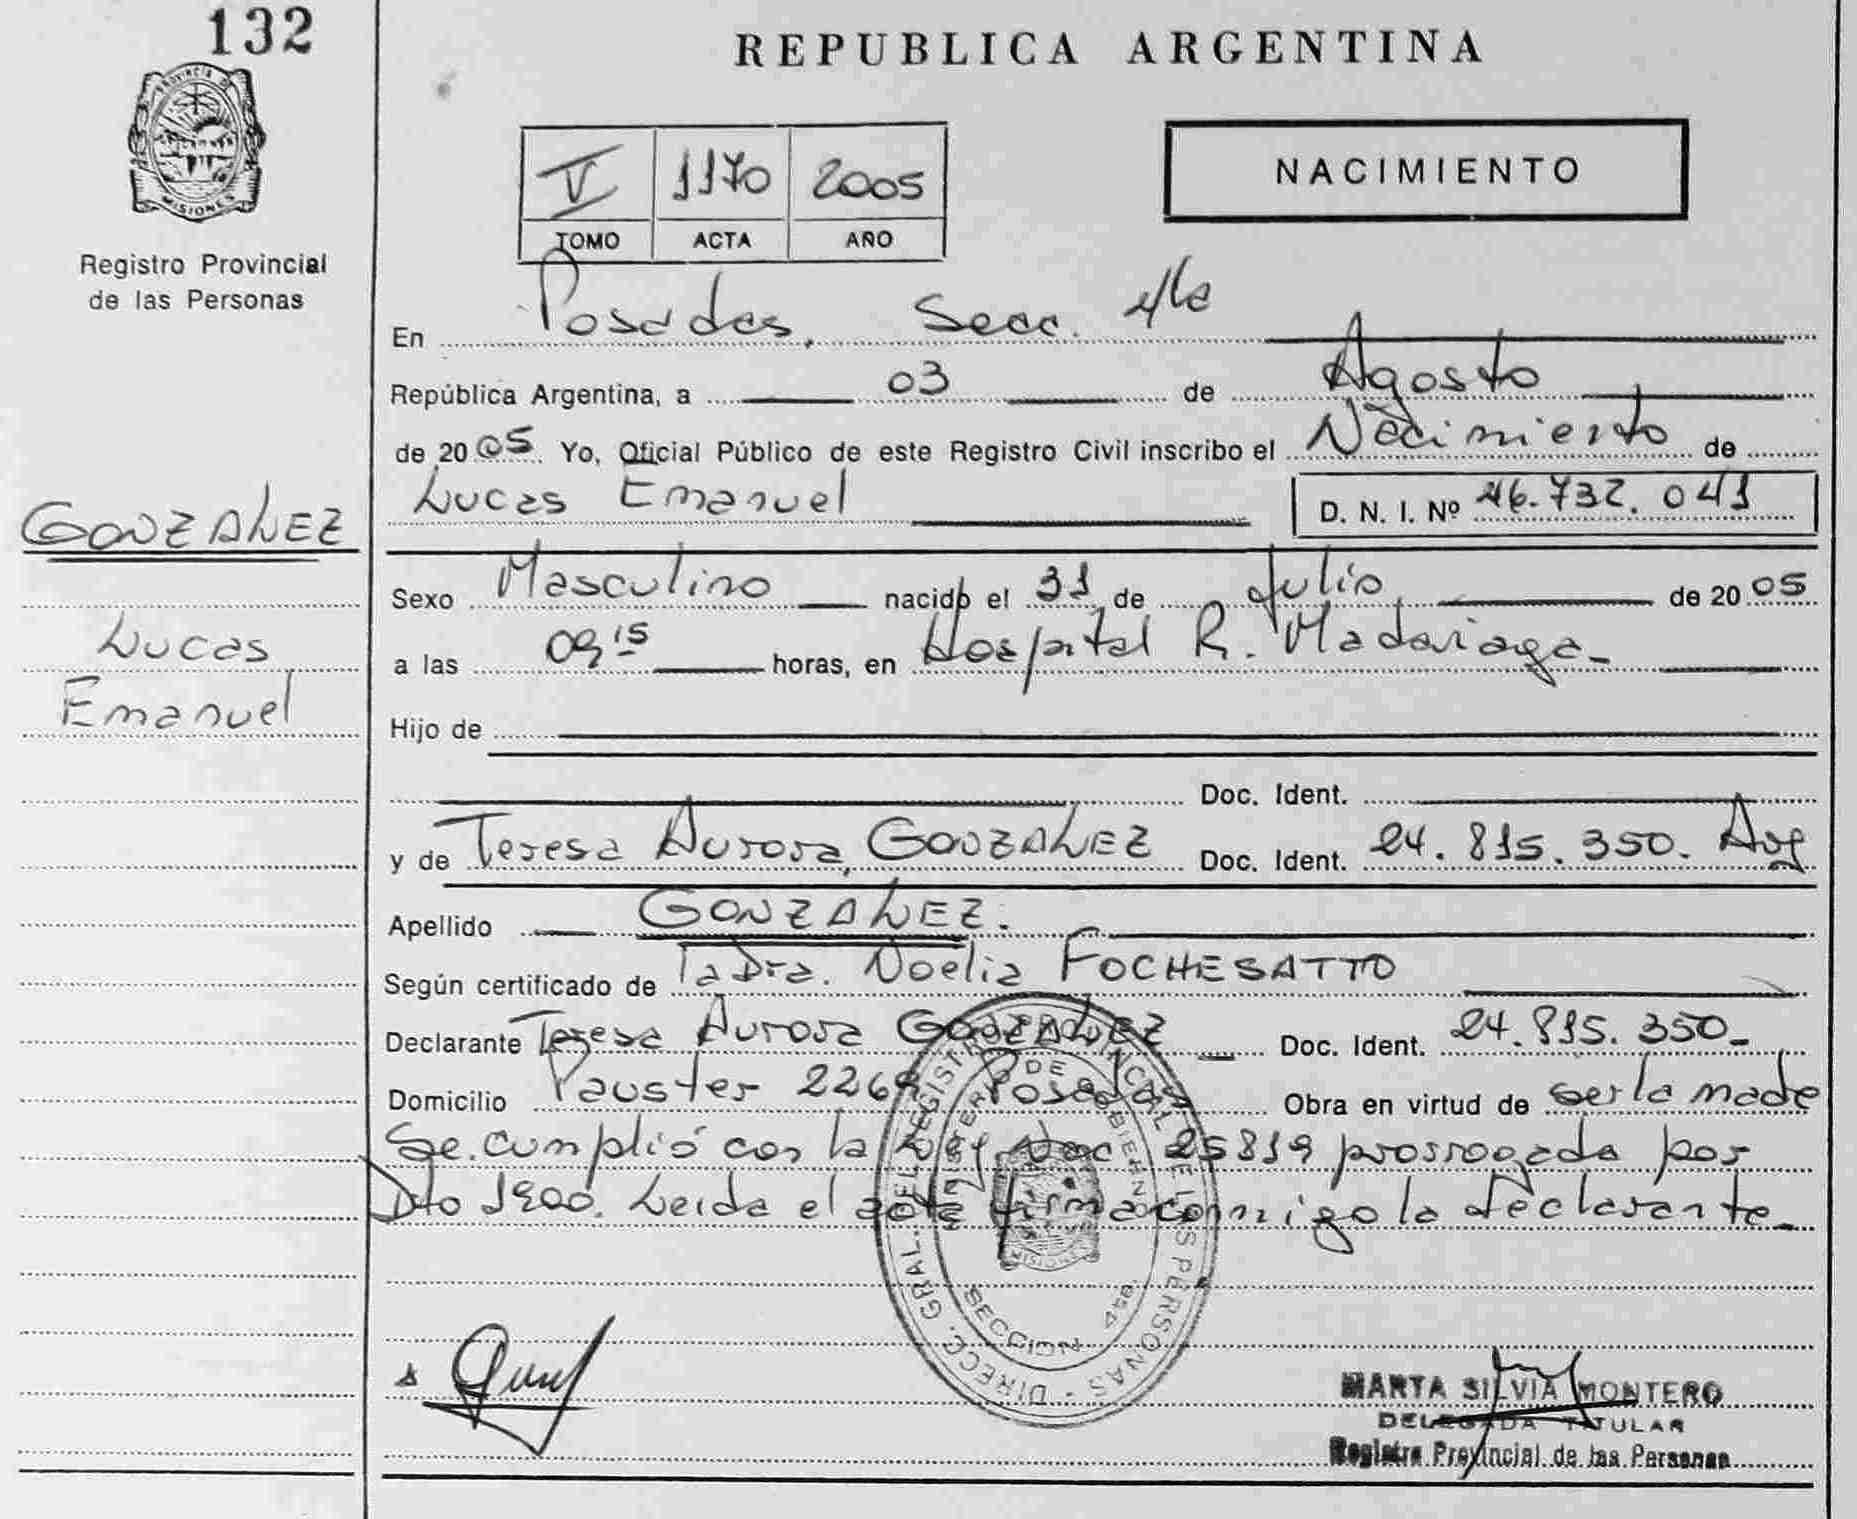 132
PROVINCIA DE
MISIONES
Registro Provincial
de las Personas
GONZALEZ
Lucas
Emanuel
REPUBLICA ARGENTINA
V 1170 2005
TOMO ACTA AÑO
NACIMIENTO
En Posadas, Secc. 4ta
República Argentina, a 03 de Agosto
de 2005 Yo, Oficial Público de este Registro Civil inscribo el Nacimiento de
Lucas Emanuel D. N. I. Nº 46.732.041
Sexo Masculino nacido el 31 de Julio de 2005
a las 09,15 horas, en Hospital R. Madariaga
Hijo de
Doc. Ident.
y de Teresa Aurora GONZALEZ Doc. Ident. 24.815.350. Arg
Apellido GONZALEZ.
Según certificado de la Dra. Noelia FOCHESATTO
Declarante Teresa Aurora GONZALEZ Doc. Ident. 24.815.350
Domicilio Pauster 2269 Posadas Obra en virtud de ser la madre
Se cumplió con la Ley Nac 25819 prorrogada por
Dto 1900. Leida el acta firma conmigo la declarante
DIRECC. GRAL. DEL REGISTRO PROVINCIAL DE LAS PERSONAS
MINISTERIO DE GOBIERNO
MISIONES
SECCION 4ta
MARTA SILVIA MONTERO
DELEGADA TITULAR
Registro Provincial de las Personas